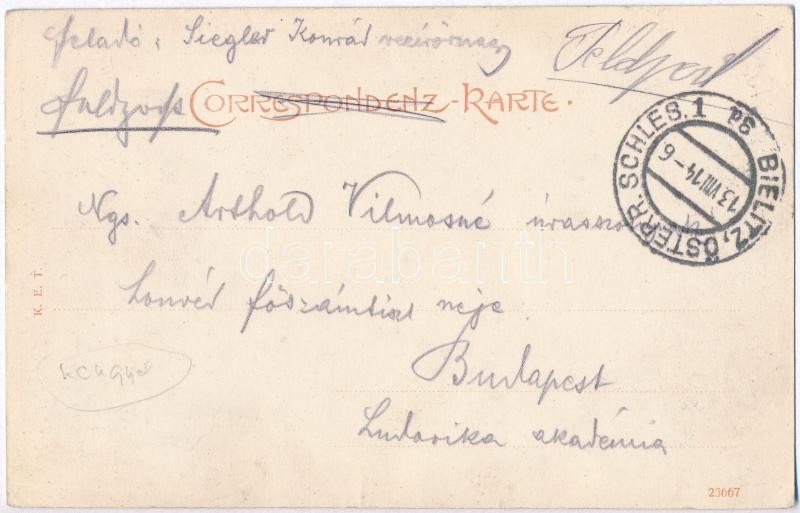 feladó: Siegler Konrád vezérőrnagy
Feldpost
Feldpost CORRESPONDENZ-KARTE.
BIELITZ, ÖSTERR. SCHLES. 1
13.VIII.14-6
Ngs. Arthold Vilmosné úrasszony
honvéd főszámtiszt neje
Budapest
Ludovika akadémia
K. E. T.
23667
darabanth